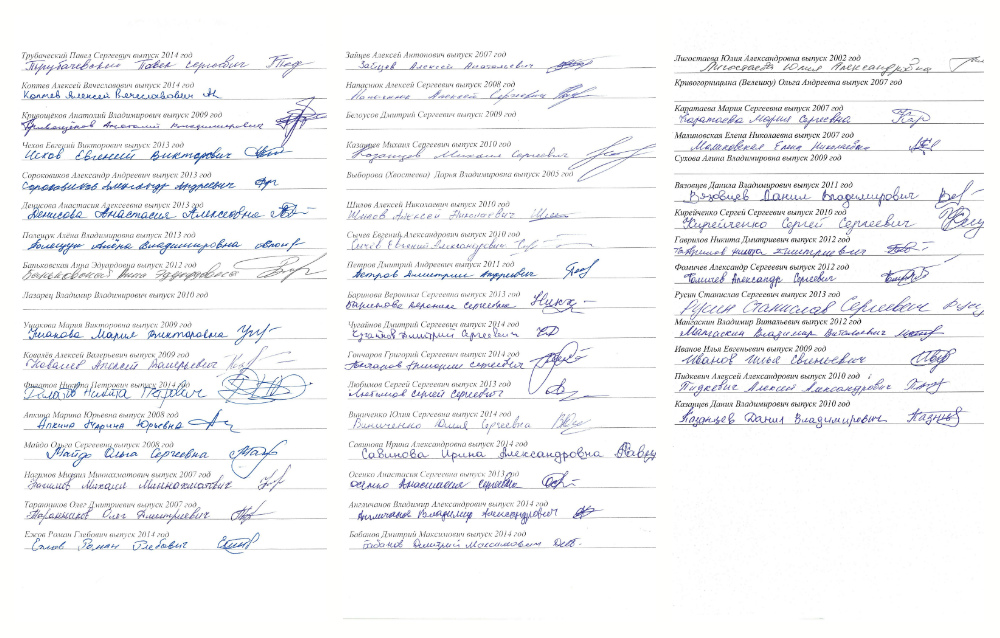 Трубаческий Павел Сергеевич выпуск 2014 год
Трубачевский Павел Сергеевич
Коптев Алексей Вячеславович выпуск 2014 год
Коптев Алексей Вячеславович
Кривощёков Анатолий Владимирович выпуск 2009 год
Кривощёков Анатолий Владимирович
Чехов Евгений Викторович выпуск 2013 год
Чехов Евгений Викторович
Сороковиков Александр Андреевич выпуск 2013 год
Сороковиков Александр Андреевич
Денисова Анастасия Алексеевна выпуск 2013 год
Денисова Анастасия Алексеевна
Полещук Алёна Владимировна выпуск 2013 год
Полещук Алёна Владимировна
Баньковская Анна Эдуардовна выпуск 2012 год
Баньковская Анна Эдуардовна
Лазарец Владимир Владимирович выпуск 2010 год
Ушакова Мария Викторовна выпуск 2009 год
Ушакова Мария Викторовна
Ковалёв Алексей Валерьевич выпуск 2009 год
Ковалев Алексей Валерьевич
Филатов Никита Петрович выпуск 2014 год
Филатов Никита Петрович
Апкина Марина Юрьевна выпуск 2008 год
Апкина Марина Юрьевна
Майдо Ольга Сергеевна выпуск 2008 год
Майдо Ольга Сергеевна
Нагимов Михаил Миннахматович выпуск 2007 год
Нагимов Михаил Миннахматович
Таранников Олег Дмитриевич выпуск 2007 год
Таранников Олег Дмитриевич
Ежов Роман Глебович выпуск 2014 год
Ежов Роман Глебович
Зайцев Алексей Антонович выпуск 2007 год
Зайцев Алексей Анатольевич
Наносюк Алексей Сергеевич выпуск 2008 год
Алексей Сергеевич
Белоусов Дмитрий Сергеевич выпуск 2009 год
Казанцев Михаил Сергеевич выпуск 2010 год
Казанцев Михаил Сергеевич
Выборова (Хвостевна) Дарья Владимировна выпуск 2005 год
Шилов Алексей Николаевич выпуск 2010 год
Шилов Алексей Николаевич
Сычёв Евгений Александрович выпуск 2010 год
Сычёв Евгений Александрович
Петров Дмитрий Андреевич выпуск 2011 год
Петров Дмитрий Андреевич
Баринова Вероника Сергеевна выпуск 2013 год
Баринова Вероника Сергеевна
Чугайнов Дмитрий Сергеевич выпуск 2014 год
Чугайнов Дмитрий Сергеевич
Гончаров Григорий Сергеевич выпуск 2014 год
Гончаров Григорий Сергеевич
Любимов Сергей Сергеевич выпуск 2013 год
Любимов Сергей Сергеевич
Винниченко Юлия Сергеевна выпуск 2014 год
Винниченко Юлия Сергеевна
Савинова Ирина Александровна выпуск 2014 год
Савинова Ирина Александровна
Осенко Анастасия Сергеевна выпуск 2013 год
Осенко Анастасия Сергеевна
Ангичанов Владимир Александрович выпуск 2014 год
Владимир Александрович
Бабанов Дмитрий Максимович выпуск 2014 год
Бабанов Дмитрий Максимович
Лигостаева Юлия Александровна выпуск 2002 год
Лигостаева Юлия Александровна
Кривогорницына (Велешку) Ольга Андреевна выпуск 2007 год
Каратаева Мария Сергеевна выпуск 2007 год
Каратаева Мария Сергеевна
Малиновская Елена Николаевна выпуск 2007 год
Малиновская Елена Николаевна
Сухова Алина Владимировна выпуск 2009 год
Вязовцев Данила Владимирович выпуск 2011 год
Вязовцев Данил Владимирович
Кирейченко Сергей Сергеевич выпуск 2010 год
Кирейченко Сергей Сергеевич
Гаврилов Никита Дмитриевич выпуск 2012 год
Гаврилов Никита Дмитриевич
Фомичев Александр Сергеевич выпуск 2012 год
Фомичев Александр Сергеевич
Русин Станислав Сергеевич выпуск 2013 год
Русин Станислав Сергеевич
Мангаскин Владимир Витальевич выпуск 2012 год
Мангаскин Владимир Витальевич
Иванов Илья Евгеньевич выпуск 2009 год
Иванов Илья Евгеньевич
Пидкевич Алексей Александрович выпуск 2010 год
Пидкевич Алексей Александрович
Казанцев Данил Владимирович выпуск 2010 год
Казанцев Данил Владимирович